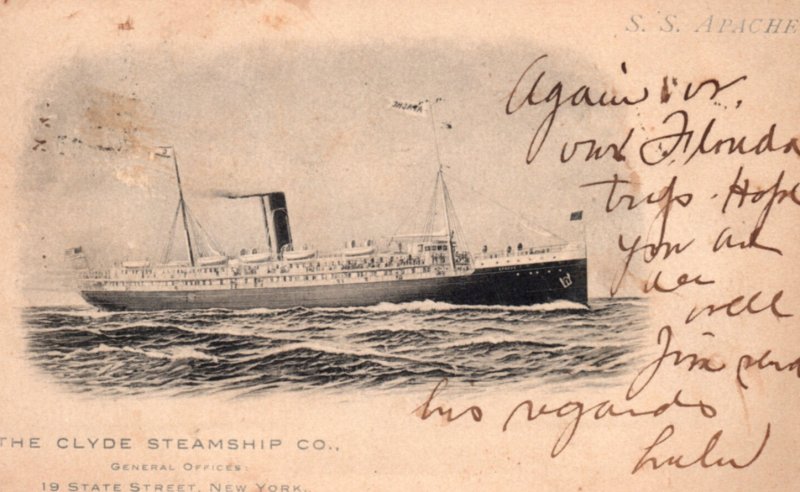 S. S. APACHE
Again
our Florida
trip. Hope
you are
all well
Jim send
his regards
Lulu
THE CLYDE STEAMSHIP CO.,
GENERAL OFFICES:
19 STATE STREET, NEW YORK.